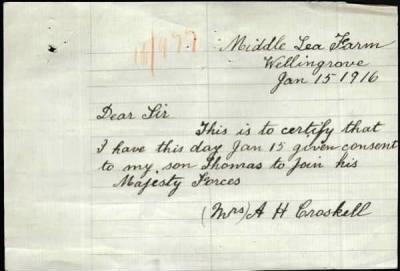 16/977
Middle Lea Farm
Wellingrove
Jan 15 1916
Dear Sir
This is to certify that
I have this day Jan 15 given consent
to my son Thomas to join his
Majesty Forces
(Mrs) A H Croskell